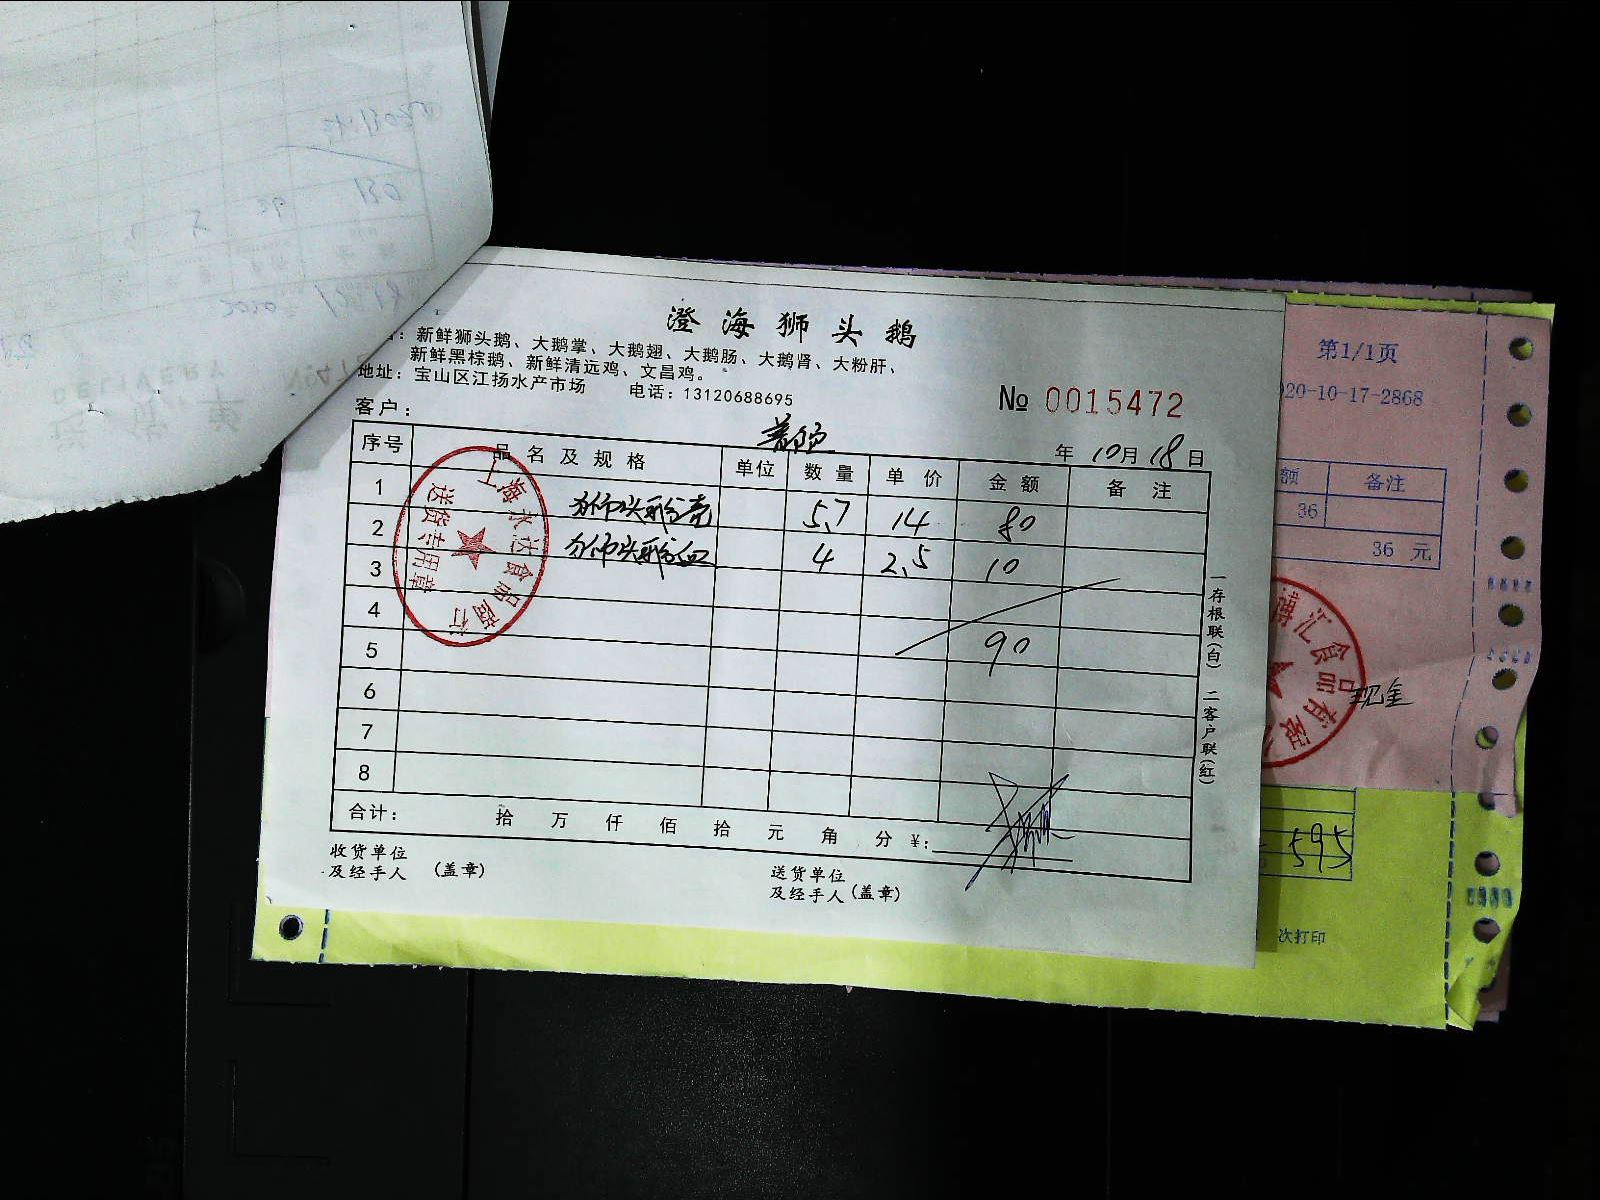 澄海狮头鹅
：新鲜狮头鹅、大鹅掌、大鹅翅、大鹅肠、大鹅肾、大粉肝、
新鲜黑棕鹅、新鲜清远鸡、文昌鸡。
地址：宝山区江扬水产市场 电话：13120688695
№ 0015472
客户：
年 10月 18日
序号 品名及规格 单位 数量 单价 金额 备注
1 狮头鹅壳 5.7 14 80
2 狮头鹅血 4 2.5 10
3
4 90
5
6
7
8
合计： 拾 万 仟 佰 拾 元 角 分 ¥:
收货单位
及经手人 （盖章）
送货单位
及经手人（盖章）
一存根联（白） 二客户联（红）
上海永达食品商行
送货专用章
第1/1页
20-10-17-2868
额 备注
36
36 元
博汇食品有限
现金
595
次打印
DELIVERY